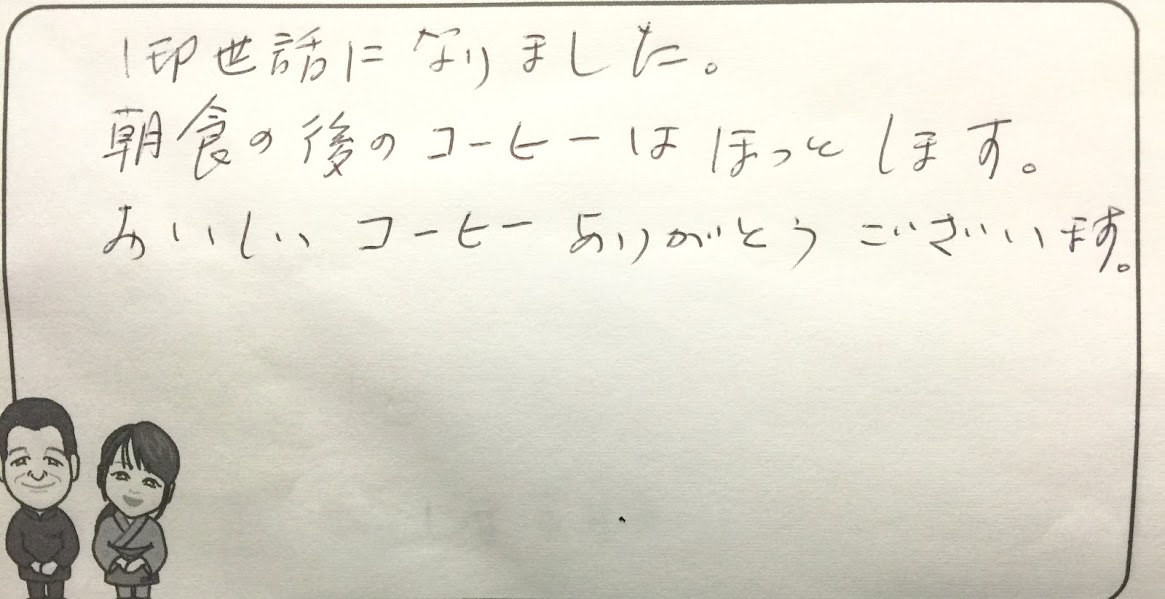 御世話になりました。
朝食の後のコーヒーはほっとします。
おいしいコーヒーありがとうございます。